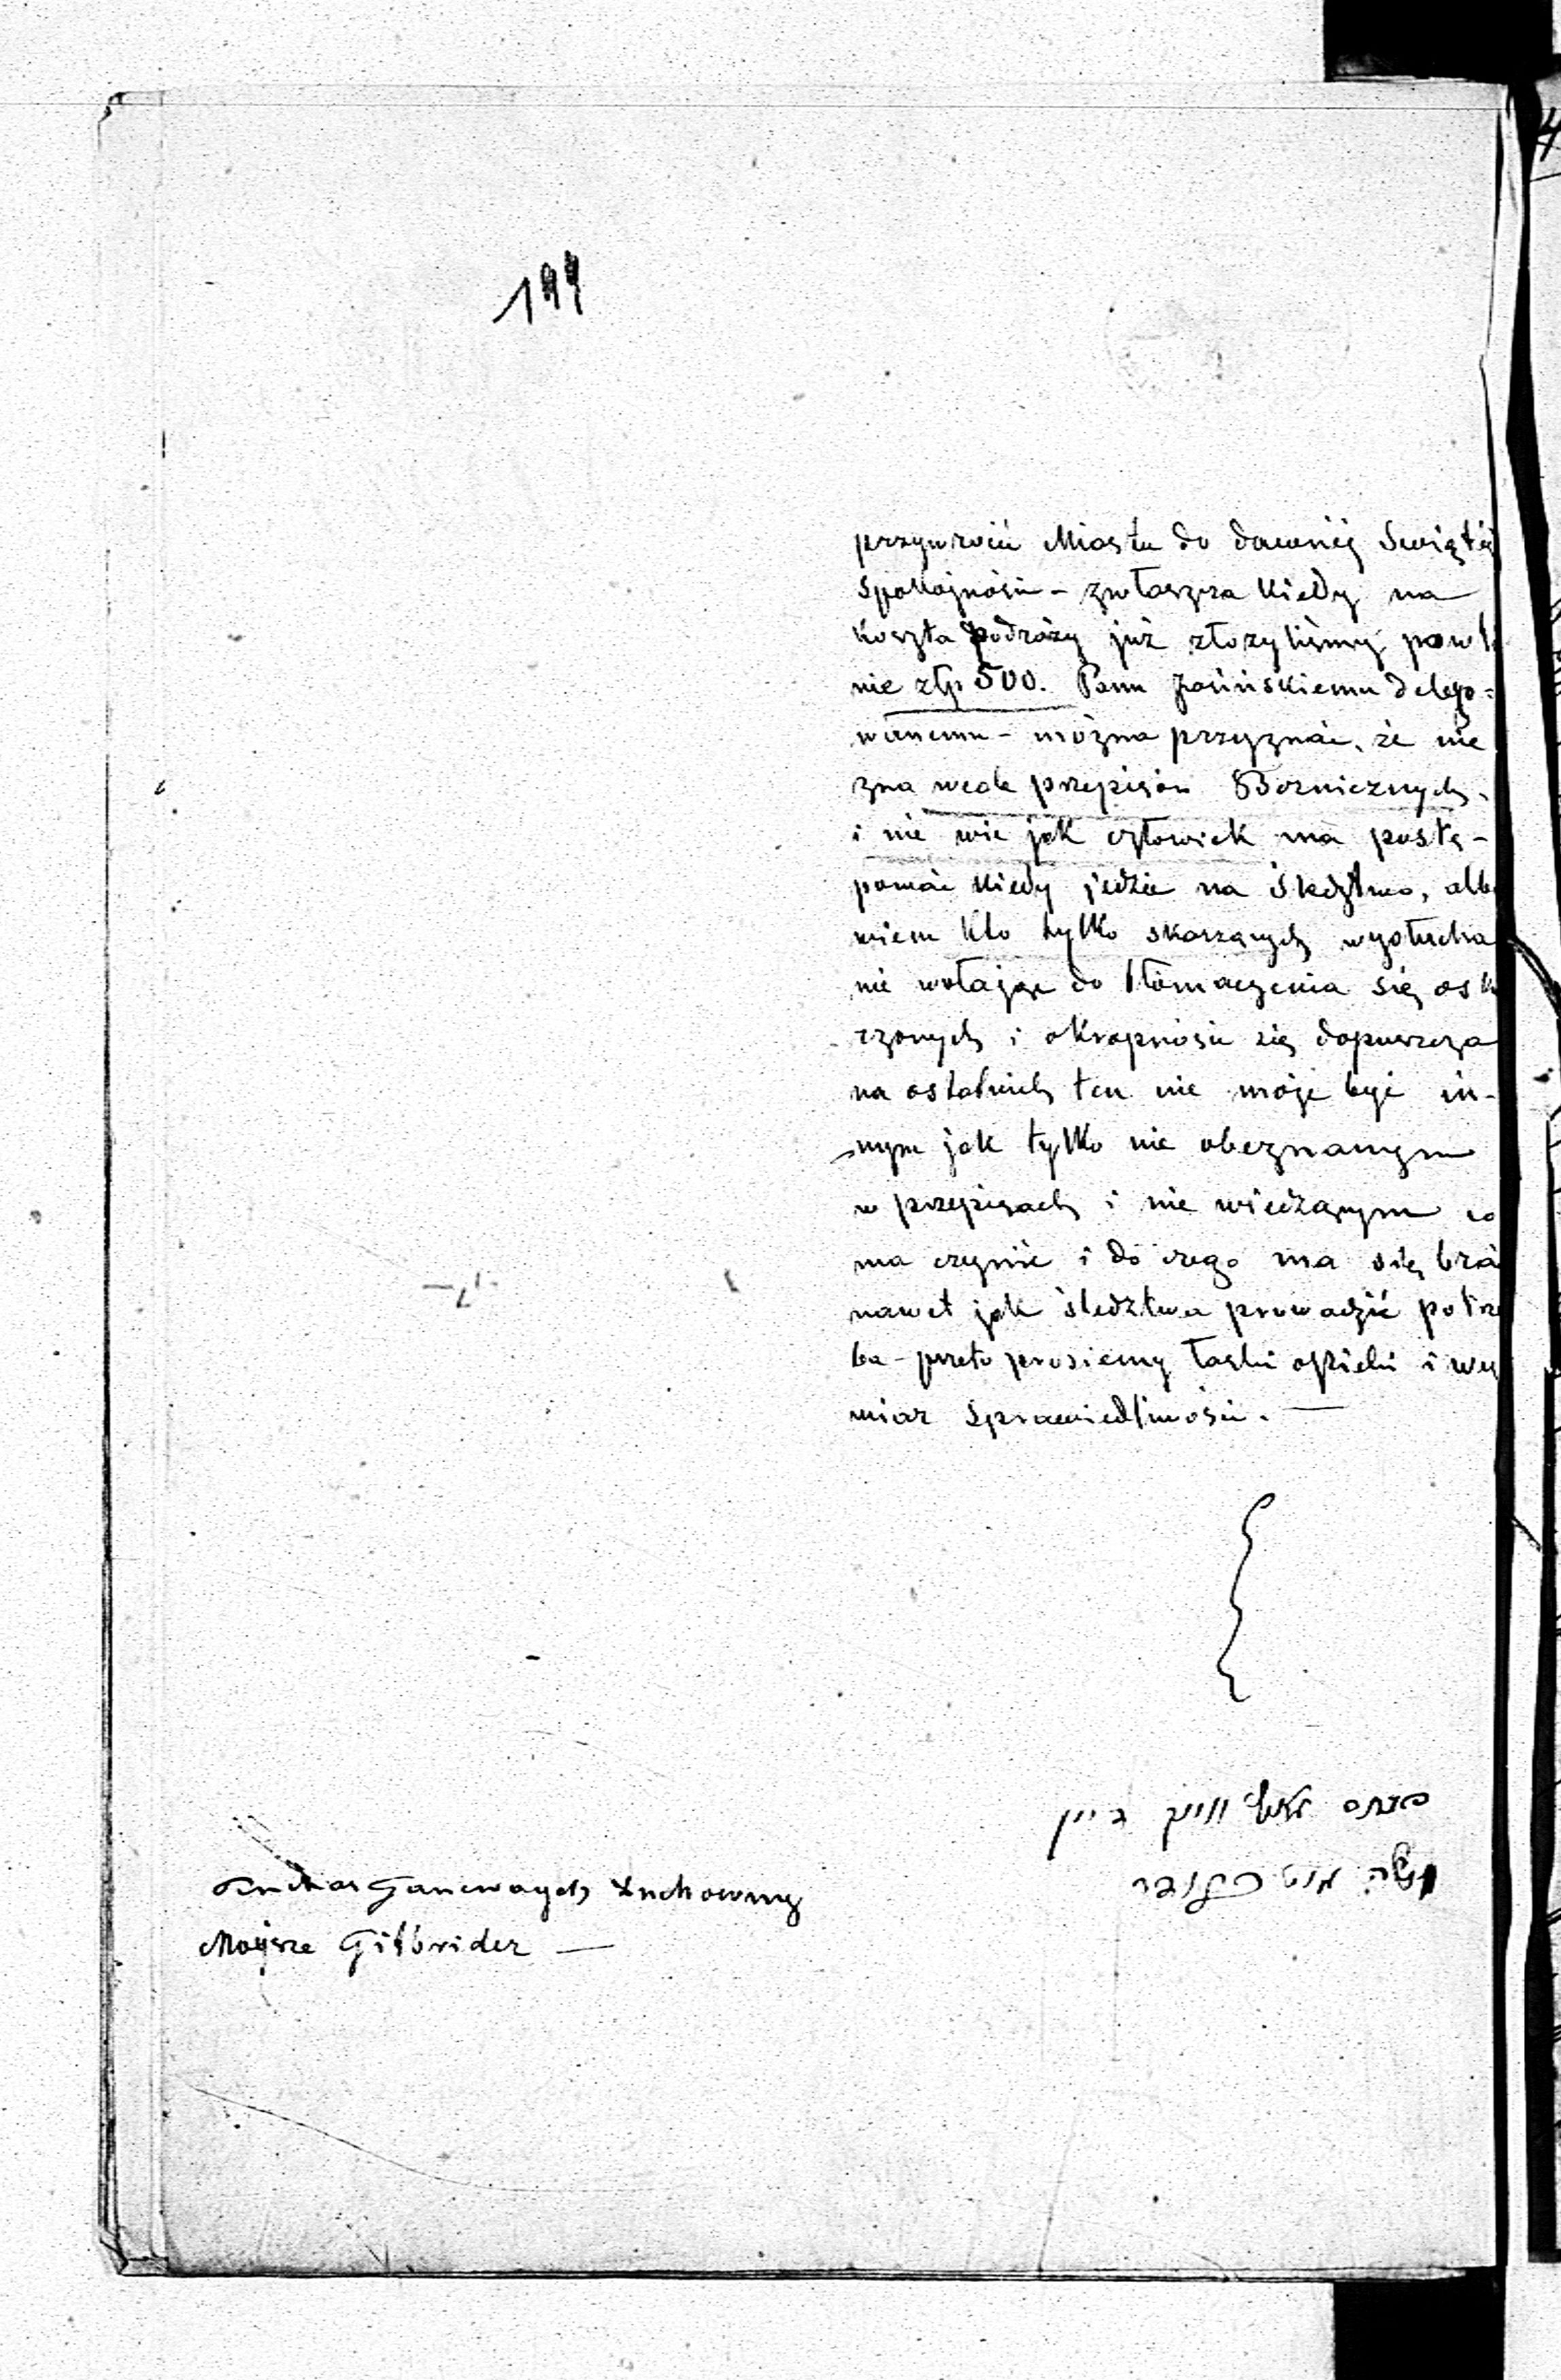 199
przywrócić Miastu do dawnéj Swiętéj
Spokojności - zwłaszcza kiedy na
koszta podróży już złożyliśmy powt
nie złp 500. Panu Jasińskiemu delego=
wanemu - można przyznać, że nie
zna wcale przepisów Bożniczych,
i nie wie jak człowiek ma postę-
pować kiedy jedzie na śledztwo, albo
wiem kto tylko skarżących wysłucha
nie wołając do tłómaczenia się osk
rzonych i okropności się dopuszcza
na ostatnich ten nie może być in-
nym jak tylko nie obeznanym
w przepisach i nie wiedzącym co
ma czynić i do czego ma się brać
nawet jak śledztwa prowadzić potrze
ba - przeto prosiemy łaski opieki i wy
miar Sprawiedliwości. —
דיין
משה
Duchowny
Moysze Gitbrider —